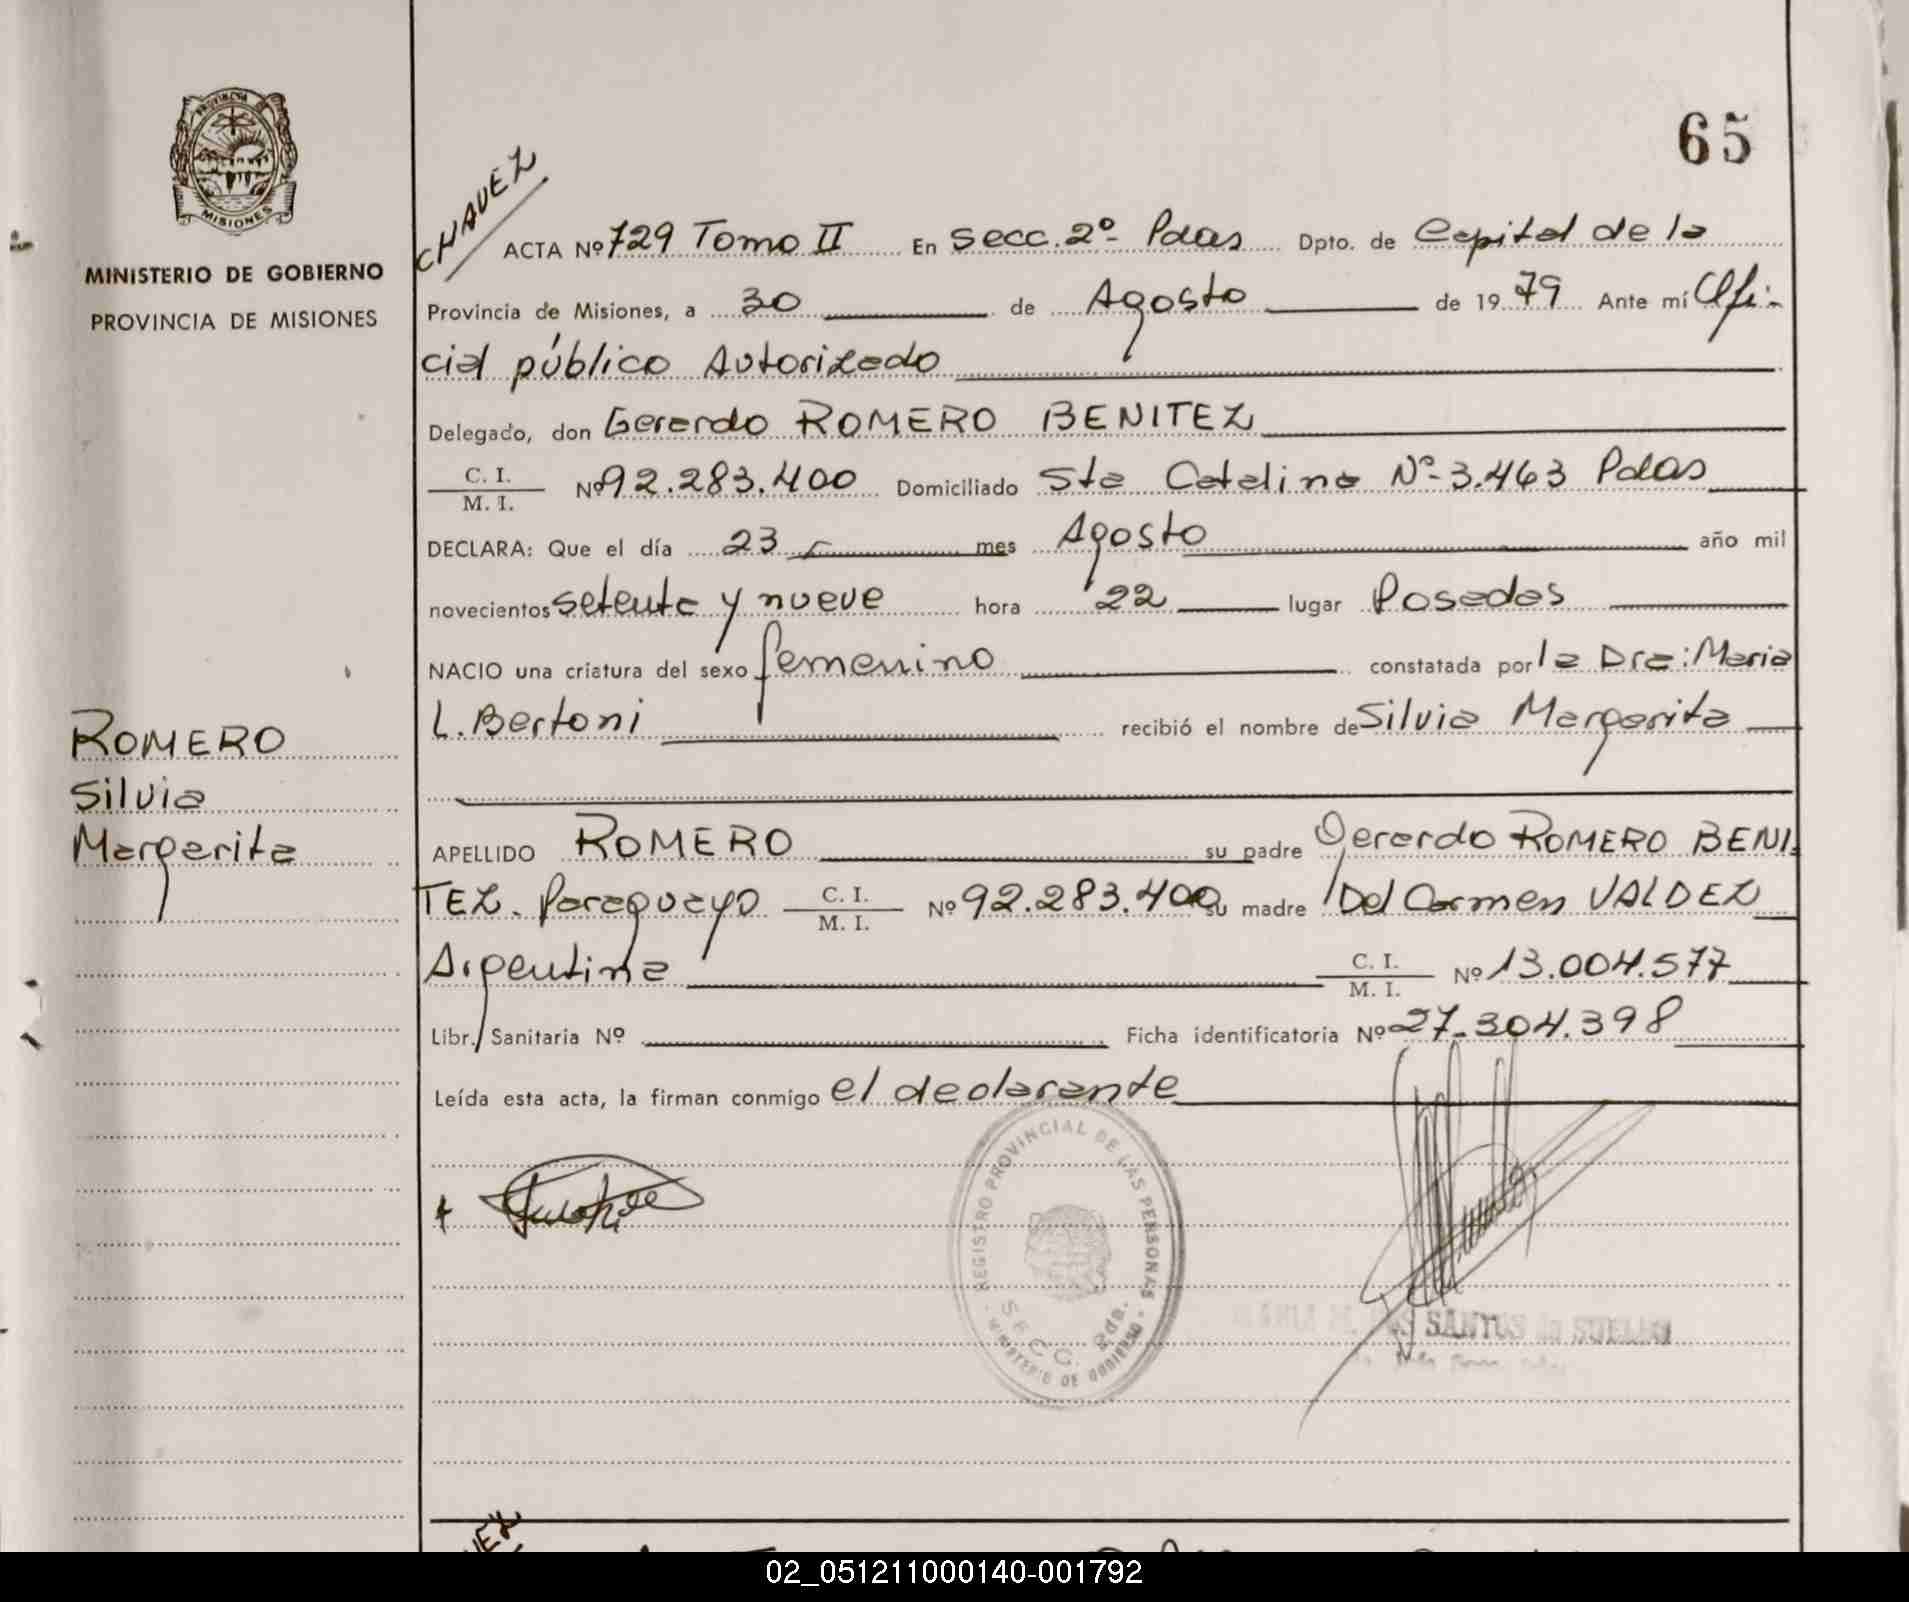 65
PROVINCIA DE
MISIONES
MINISTERIO DE GOBIERNO
PROVINCIA DE MISIONES
CHAVEZ
ACTA Nº 729 Tomo II En Secc. 2º Pdas Dpto. de Capital de la
Provincia de Misiones, a 30 de Agosto de 1979 Ante mí Ofi-
cial público Autorizado
Delegado, don Gerardo ROMERO BENITEZ
C. I.
M. I. Nº 92.283.400 Domiciliado Sta Catalina Nº 3.463 Pdas
DECLARA: Que el día 23 mes Agosto año mil
novecientos setenta y nueve hora 22 lugar Posadas
NACIO una criatura del sexo femenino constatada por la Dra: Maria
L. Bertoni recibió el nombre de Silvia Margarita
ROMERO
Silvia
Margarita
APELLIDO ROMERO su padre Gerardo ROMERO BENI-
TEZ. Paraguayo C. I. M. I. Nº 92.283.400 su madre Del Carmen VALDEZ
Argentina C. I. M. I. Nº 13.004.577
Libr. Sanitaria Nº Ficha identificatoria Nº 27.304.398
Leída esta acta, la firman conmigo el declarante
REGISTRO PROVINCIAL DE LAS PERSONAS
SECC. 2da.
MINISTERIO DE GOBIERNO
SANTOS de
02_051211000140-001792